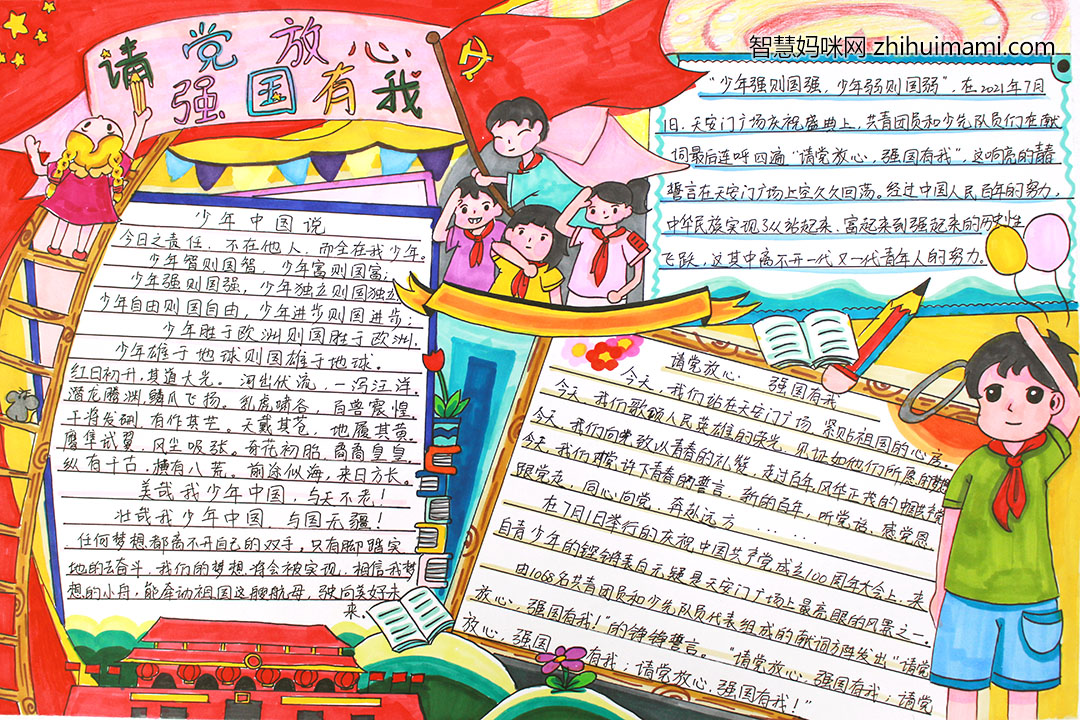 请党放心
强国有我
智慧妈咪网 zhihuimami.com
“少年强则国强，少年弱则国弱”，在2021年7月
1日，天安门广场庆祝盛典上，共青团员和少先队员们在献
词最后连呼四遍“请党放心，强国有我”，这响亮的青春
誓言在天安门广场上空久久回荡。经过中国人民百年的努力，
中华民族实现了从站起来、富起来到强起来的历史性
飞跃，这其中离不开一代又一代青年人的努力。
少年中国说
今日之责任，不在他人，而全在我少年。
少年智则国智，少年富则国富；
少年强则国强，少年独立则国独立
少年自由则国自由，少年进步则国进步；
少年胜于欧洲则国胜于欧洲，
少年雄于地球则国雄于地球。
红日初升，其道大光。河出伏流，一泻汪洋。
潜龙腾渊，鳞爪飞扬。乳虎啸谷，百兽震惶。
干将发硎，有作其芒。天戴其苍，地履其黄。
鹰隼试翼，风尘吸张。奇花初胎，矞矞皇皇。
纵有千古，横有八荒。前途似海，来日方长。
美哉我少年中国，与天不老！
壮哉我少年中国，与国无疆！
任何梦想都离不开自己的双手，只有脚踏实
地的去奋斗，我们的梦想将会被实现，相信我梦
想的小舟，能牵动祖国这艘航母，驶向美好未
来。
请党放心 强国有我
今天，我们站在天安门广场 紧贴祖国的心房。
今天，我们歌颂人民英雄的荣光，见证如他们所愿的
今天，我们向党致以青春的礼赞，走过百年风华正茂的中国共产党
今天，我们对党许下青春的誓言，新的百年，听党话、感党恩
跟党走，同心向党，奔赴远方......
在7月1日举行的庆祝中国共产党成立100周年大会上，来
自青少年的铿锵表白无疑是天安门广场上最亮眼的风景之一。
由1068名共青团员和少先队员代表组成的献词方阵发出“请党
放心，强国有我！”的铮铮誓言。“请党放心，强国有我；请党
放心，强国有我；请党放心，强国有我！”